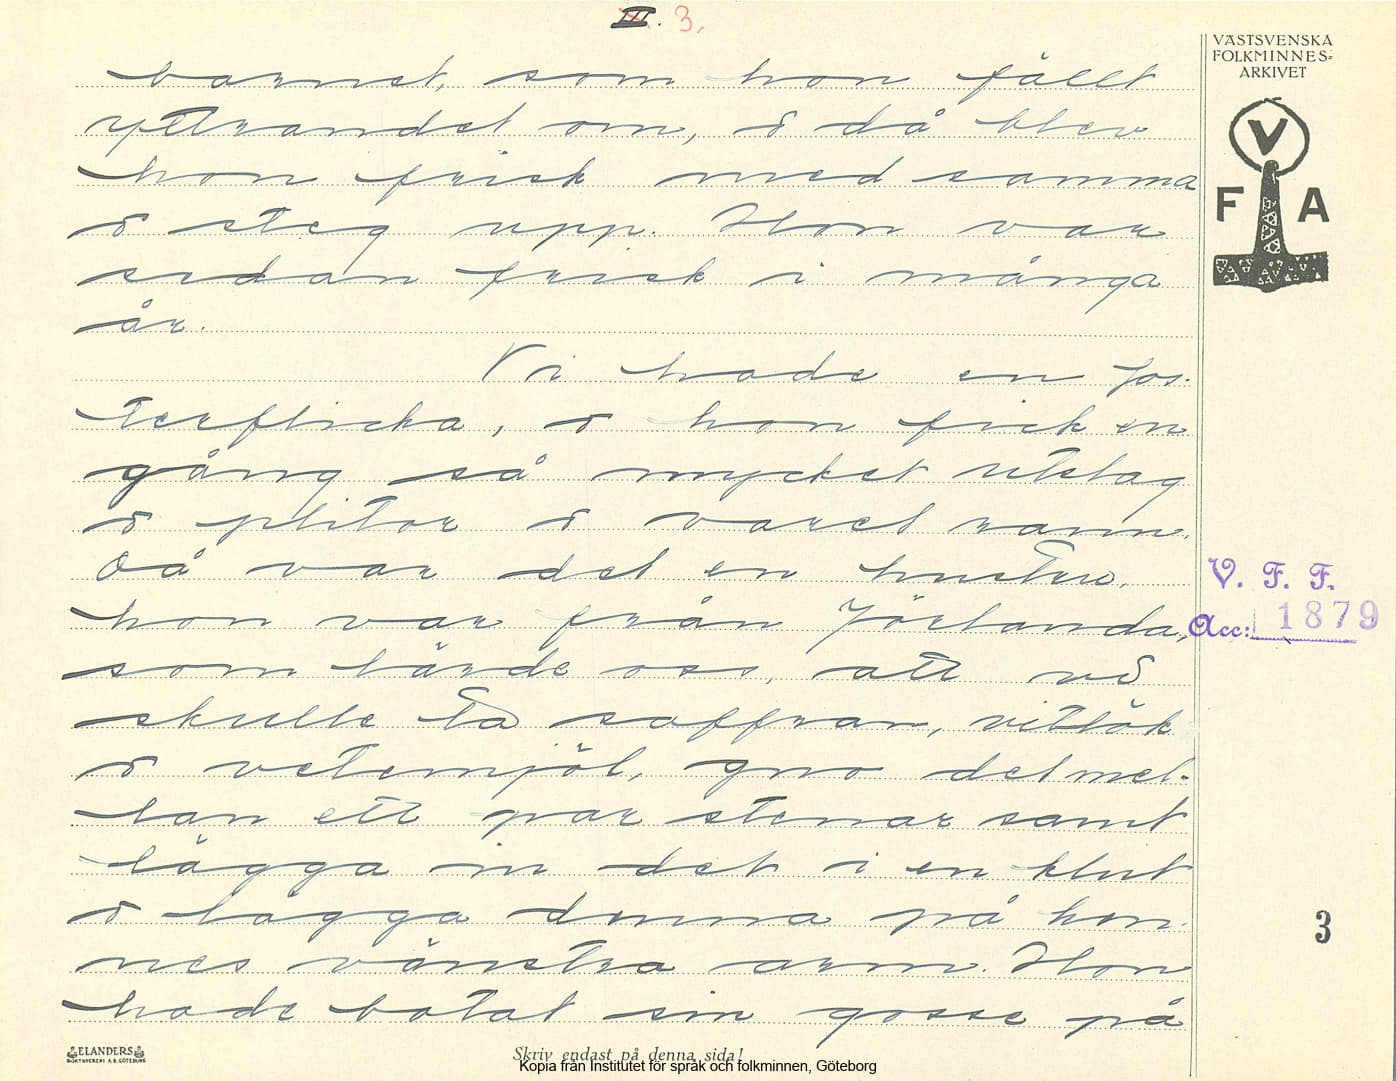 III. 3.
VÄSTSVENSKA
FOLKMINNES-
ARKIVET
V
F A
barnet, som hon fällt
yttrandet om, o då blev
hon frisk med samma
o steg upp. Hon var
sedan frisk i många
år.
Vi hade en fos-
terflicka, o hon fick en
gång så mycket utslag
o plitor o varet rann.
Då var det en hustru,
hon var från Jörlanda,
som lärde oss, att vi
skulle ta saffran, vitlök
o vetemjöl, gno det mel-
lan ett par stenar samt
lägga in det i en klut
o lägga denna på hen-
nes vänstra arm. Hon
hade botat sin gosse på
V. F. F.
Acc: 1879
3
ELANDERS
BOKTRYCKERI A.B. GÖTEBORG
Skriv endast på denna sida!
Kopia från Institutet för språk och folkminnen, Göteborg